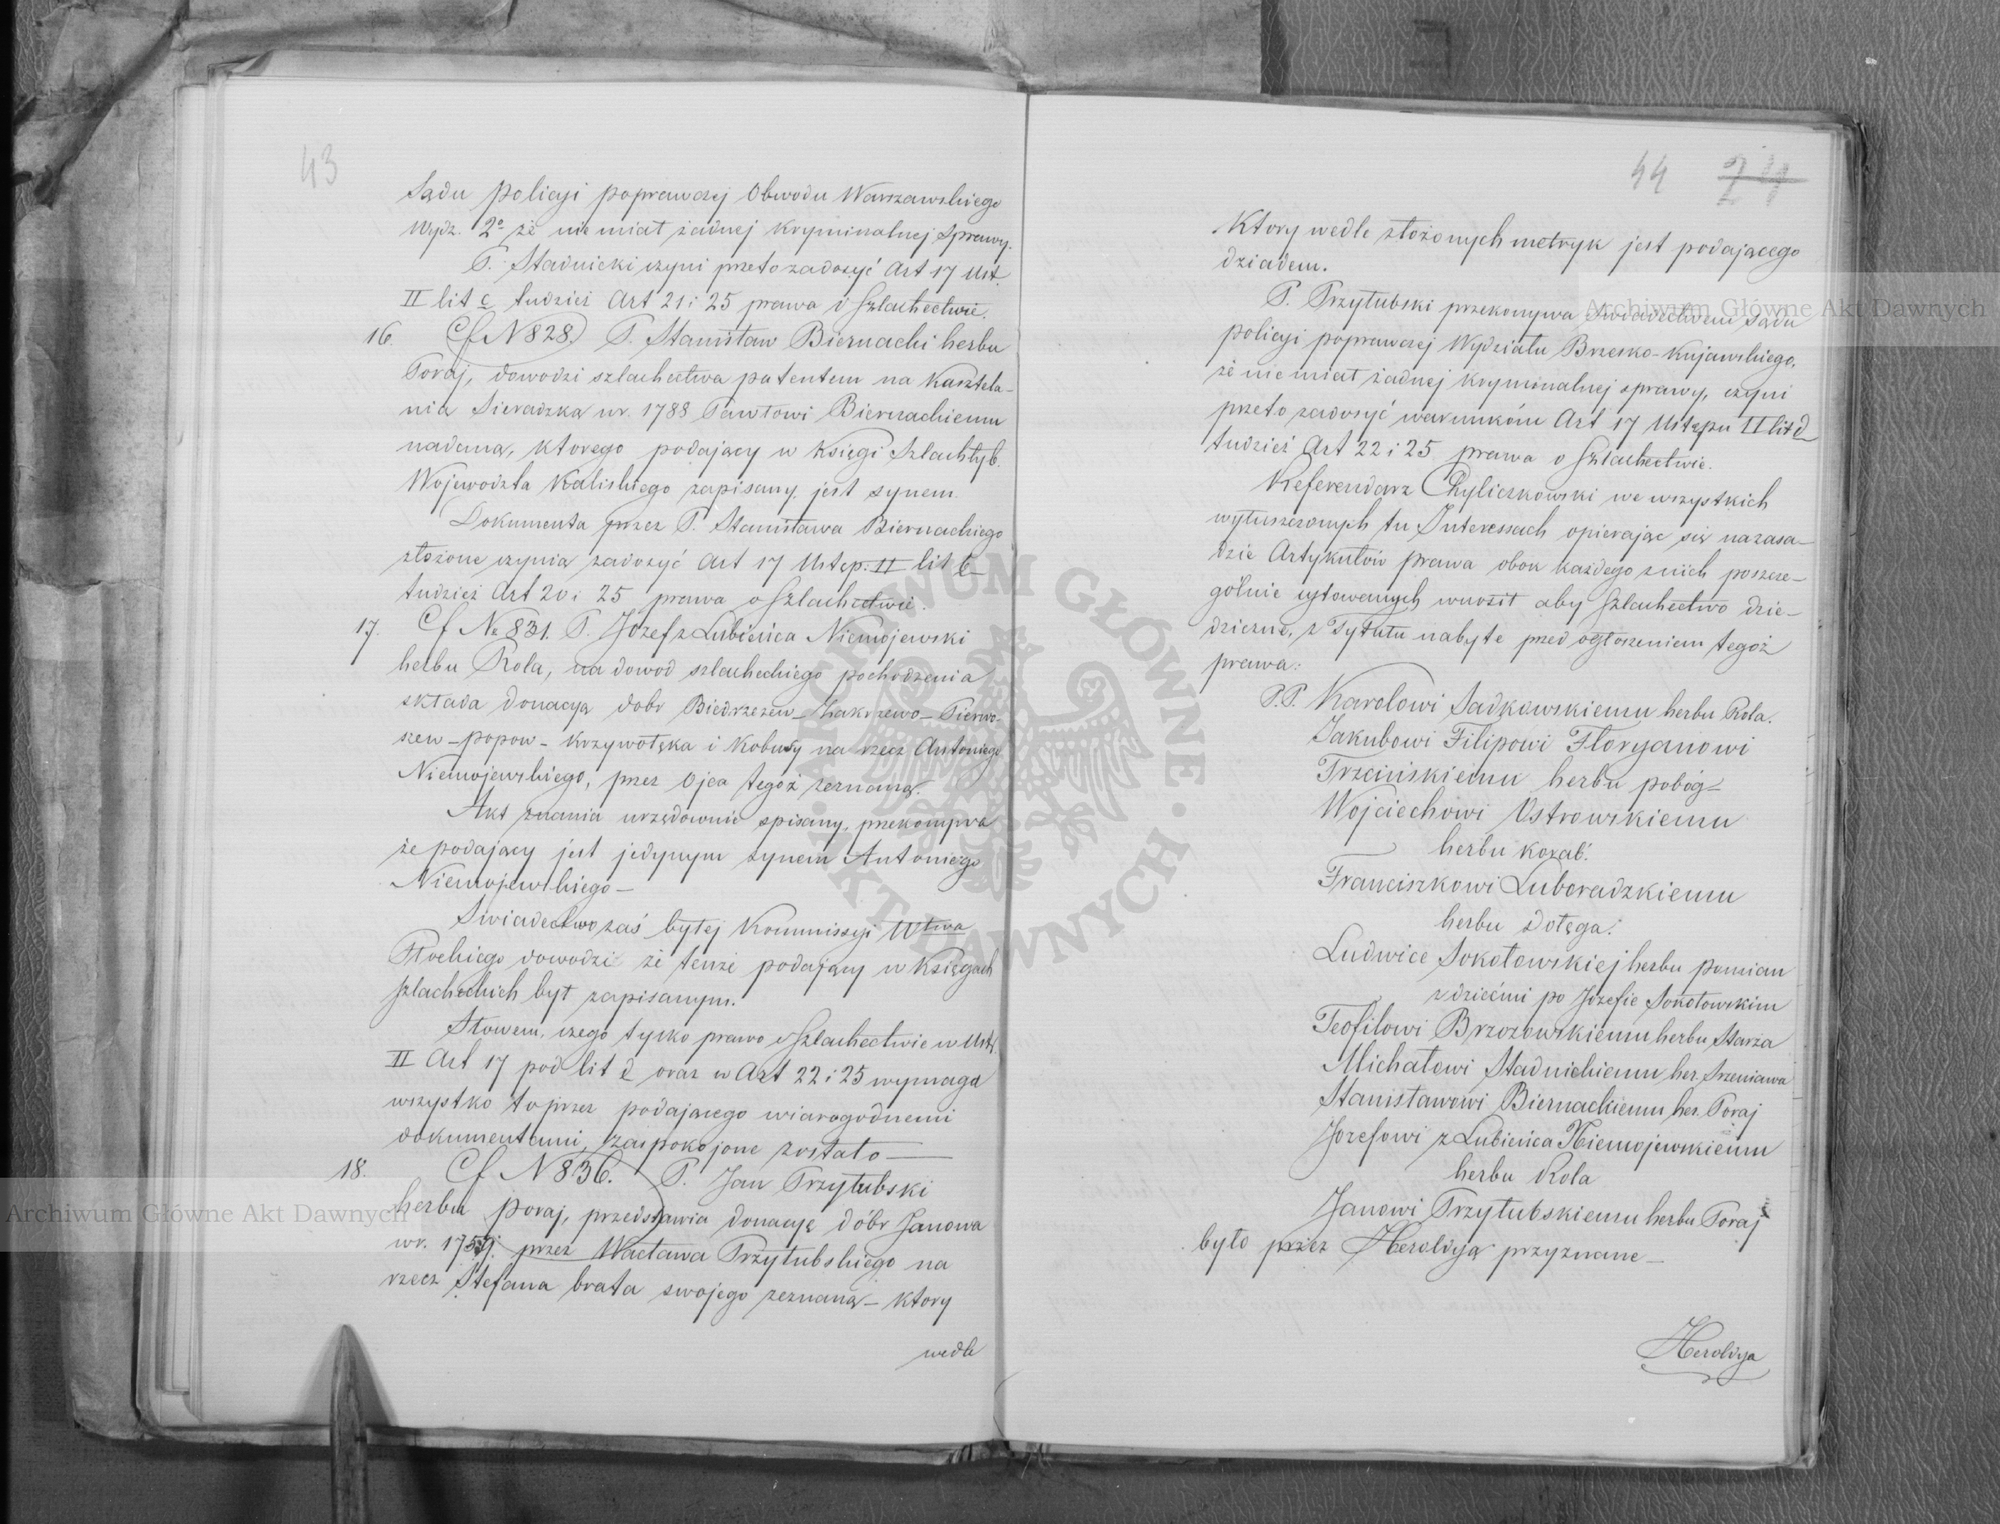 43
Sądu policyi poprawczej Obwodu Warszawskiego
Wydz. 2º że nie miał żadnej kryminalnej sprawy.
P. Stadnicki czyni przeto zadosyć Art 17 Ust.
II lit c tudzież Art 21 i 25 prawa o Szlachectwie.
16. Cf N 828. P. Stanisław Biernacki herbu
Poraj, dowodzi szlachectwa patentem na Kasztela-
nią Sieradzką w r. 1788 Pawłowi Biernackiemu
nadaną, ktorego podający w Księgi Szlach: b.
Wojewodztwa Kaliskiego zapisany jest synem.
Dokumenta przez P. Stanisława Biernackiego
złożone czynią zadosyć Art 17 Ustęp. II lit b
tudzież Art 20 i 25 prawa o Szlachectwie.
17. Cf № 831. P. Jozef z Lubieńca Niemojewski
herbu Rola, na dowod szlacheckiego pochodzenia
składa donacyą dobr Biedrzezew - Zakrzewo - Pierwo-
szew - popow - Krzywołęka i Kobusy na rzecz Antoniego
Niemojewskiego, przez Ojca tegoż zeznaną.
Akt znania urzędownie spisany, przekonywa
że podający jest jedynym synem Antoniego
Niemojewskiego -
Swiadectwo zaś byłej Kommissyi Wtwa
Płockiego dowodzi że tenże podający w Księgach
szlacheckich był zapisanym.
Słowem, czego tylko prawo o Szlachectwie w Ust.
II Art 17 pod lit d oraz w Art 22 i 25 wymaga
wszystko to przez podającego wiarogodnemi
dokumentami, zaspokojone zostało —
18. Cf N 836. P. Jan Przyłubski
herbu poraj, przedstawia donacyę dobr Janowa
w r. przez Wacława Przyłubskiego na
rzecz Stefana brata swojego zeznaną - ktory
wedle
44 24
Ktory wedle złożonych metryk jest podającego
dziadem.
P. Przyłubski przekonywa swiadectwem Sądu
policyi poprawczej Wydziału Brzesko-Kujawskiego,
że nie miał żadnej kryminalnej sprawy, czyni
przeto zadosyć warunkom Art 17 Ustępu II lit d
tudzież Art 22 i 25 prawa o Szlachectwie.
Referendarz Chyliczkowski we wszystkich
wyłuszczonych tu Interessach opierając się na zasa-
dzie Artykułów prawa obok każdego z nich poszcze-
gólnie cytowanych wnosił aby Szlachectwo dzie-
dziczne, z Tytułu nabyte przed ogłoszeniem tegoż
prawa:
P.P. Karolowi Sadkowskiemu herbu Rola.
Jakubowi Filipowi Floryanowi
Trzcińskiemu herbu pobóg -
Wojciechowi Ostrowskiemu
herbu korab.
Franciszkowi Luboradzkiemu
herbu Dołęga.
Ludwice Sokołowskiej herbu pomian
z dziećmi po Jozefie Sokołowskim
Teofilowi Brzozowskiemu herbu Starza
Michałowi Stadnickiemu her. Srzeniawa
Stanisławowi Biernackiemu her. Poraj
Jozefowi z Lubieńca Niemojewskiemu
herbu Rola
Janowi Przyłubskiemu herbu Poraj
było przez Heroldyą przyznane -
Heroldya
Archiwum Główne Akt Dawnych
Archiwum Główne Akt Dawnych
ARCHIWUM GŁÓWNE AKT DAWNYCH